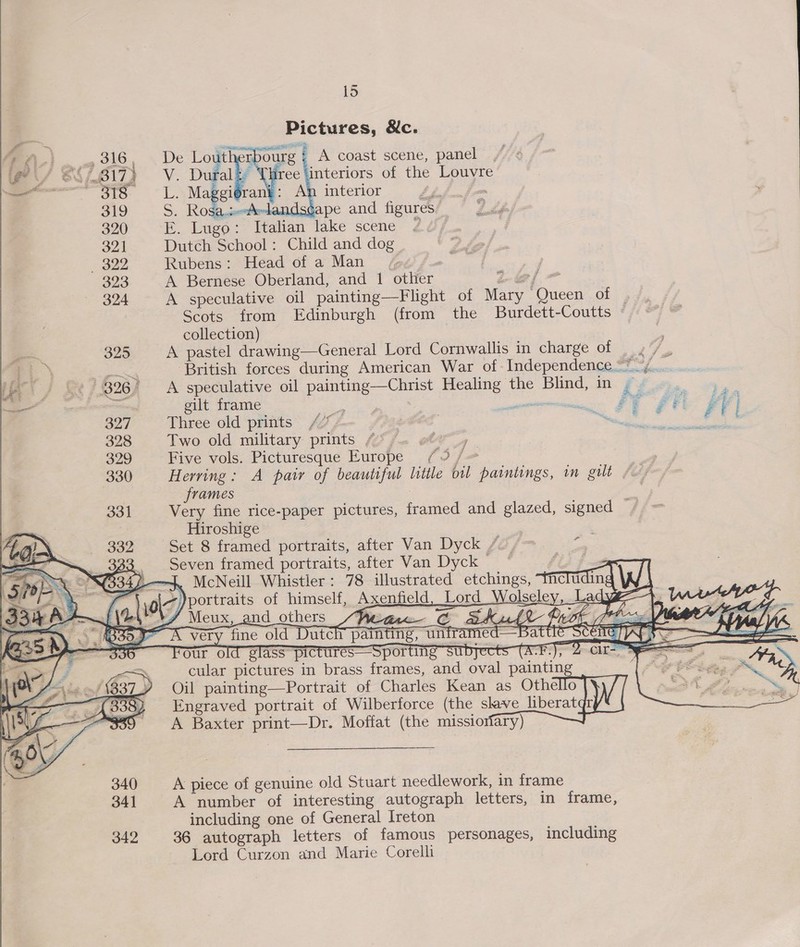 15
Pictures, &c.
316 De Loutherbourg: A coast scene, panel
317 V. Dural: Three interiors of the Louvre
318 L. Maggigrani: An interior
319 S. Rosa: A landscape and figures
320 E. Lugo: Italian lake scene
321 Dutch School: Child and dog
322 Rubens: Head of a Man
323 A Bernese Oberland, and 1 other
324 A speculative oil painting—Flight of Mary Queen of
Scots from Edinburgh (from the Burdett-Coutts
collection)
325 A pastel drawing—General Lord Cornwallis in charge of
British forces during American War of Independence
326 A speculative oil painting—Christ Healing the Blind, in
gilt frame
327 Three old prints
328 Two old military prints
329 Five vols. Picturesque Europe
330 Herring: A pair of beautiful little oil paintings, in gilt
frames
331 Very fine rice-paper pictures, framed and glazed, signed
Hiroshige
332 Set 8 framed portraits, after Van Dyck
333 Seven framed portraits, after Van Dyck
334 J. McNeill Whistler: 78 illustrated etchings, including
portraits of himself, Axenfield, Lord Wolseley, Lady
Meux, and others
334A
335 A very fine old Dutch painting, unframed—Battle Scene
335A
336 Four old glass pictures—Sporting subjects (A.F.), 2 cir-
cular pictures in brass frames, and oval painting
337 Oil painting—Portrait of Charles Kean as Othello
338 Engraved portrait of Wilberforce (the slave liberator)
339 A Baxter print—Dr. Moffat (the missionary)
340 A piece of genuine old Stuart needlework, in frame
341 A number of interesting autograph letters, in frame,
including one of General Ireton
342 36 autograph letters of famous personages, including
Lord Curzon and Marie Corelli